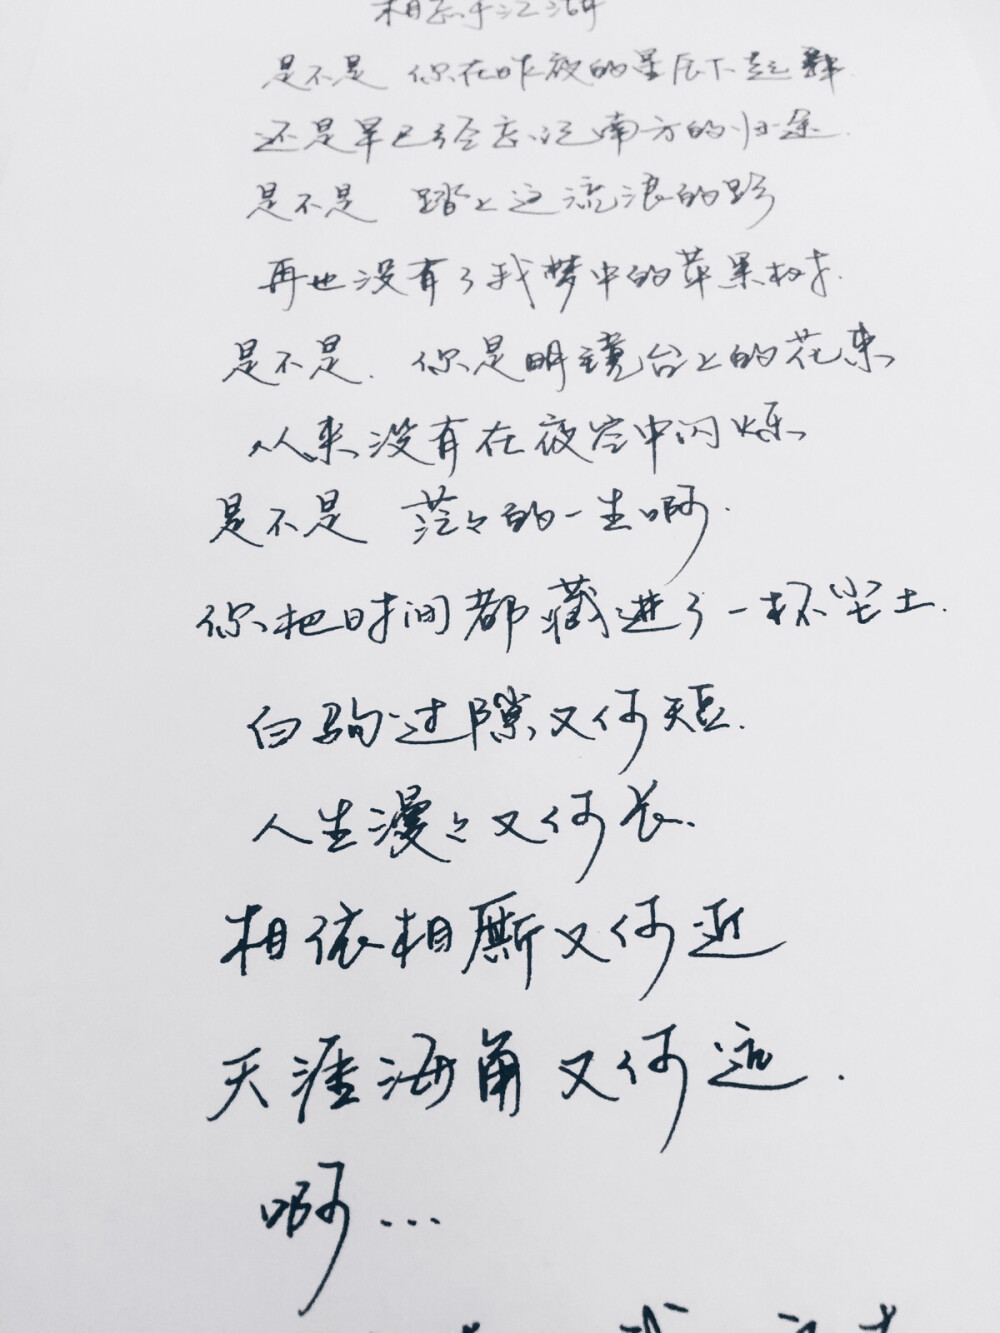 相忘于江湖
是不是 你在昨夜的星辰下起舞
还是早已经忘记南方的归途.
是不是 踏上这流浪的路
再也没有了我梦中的苹果树.
是不是. 你是明镜台上的花束
从来没有在夜空中闪烁
是不是 茫々的一生啊.
你把时间都藏进了一抔尘土.
白驹过隙又何短.
人生漫々又何长.
相依相厮又何近
天涯海角又何远.
啊...